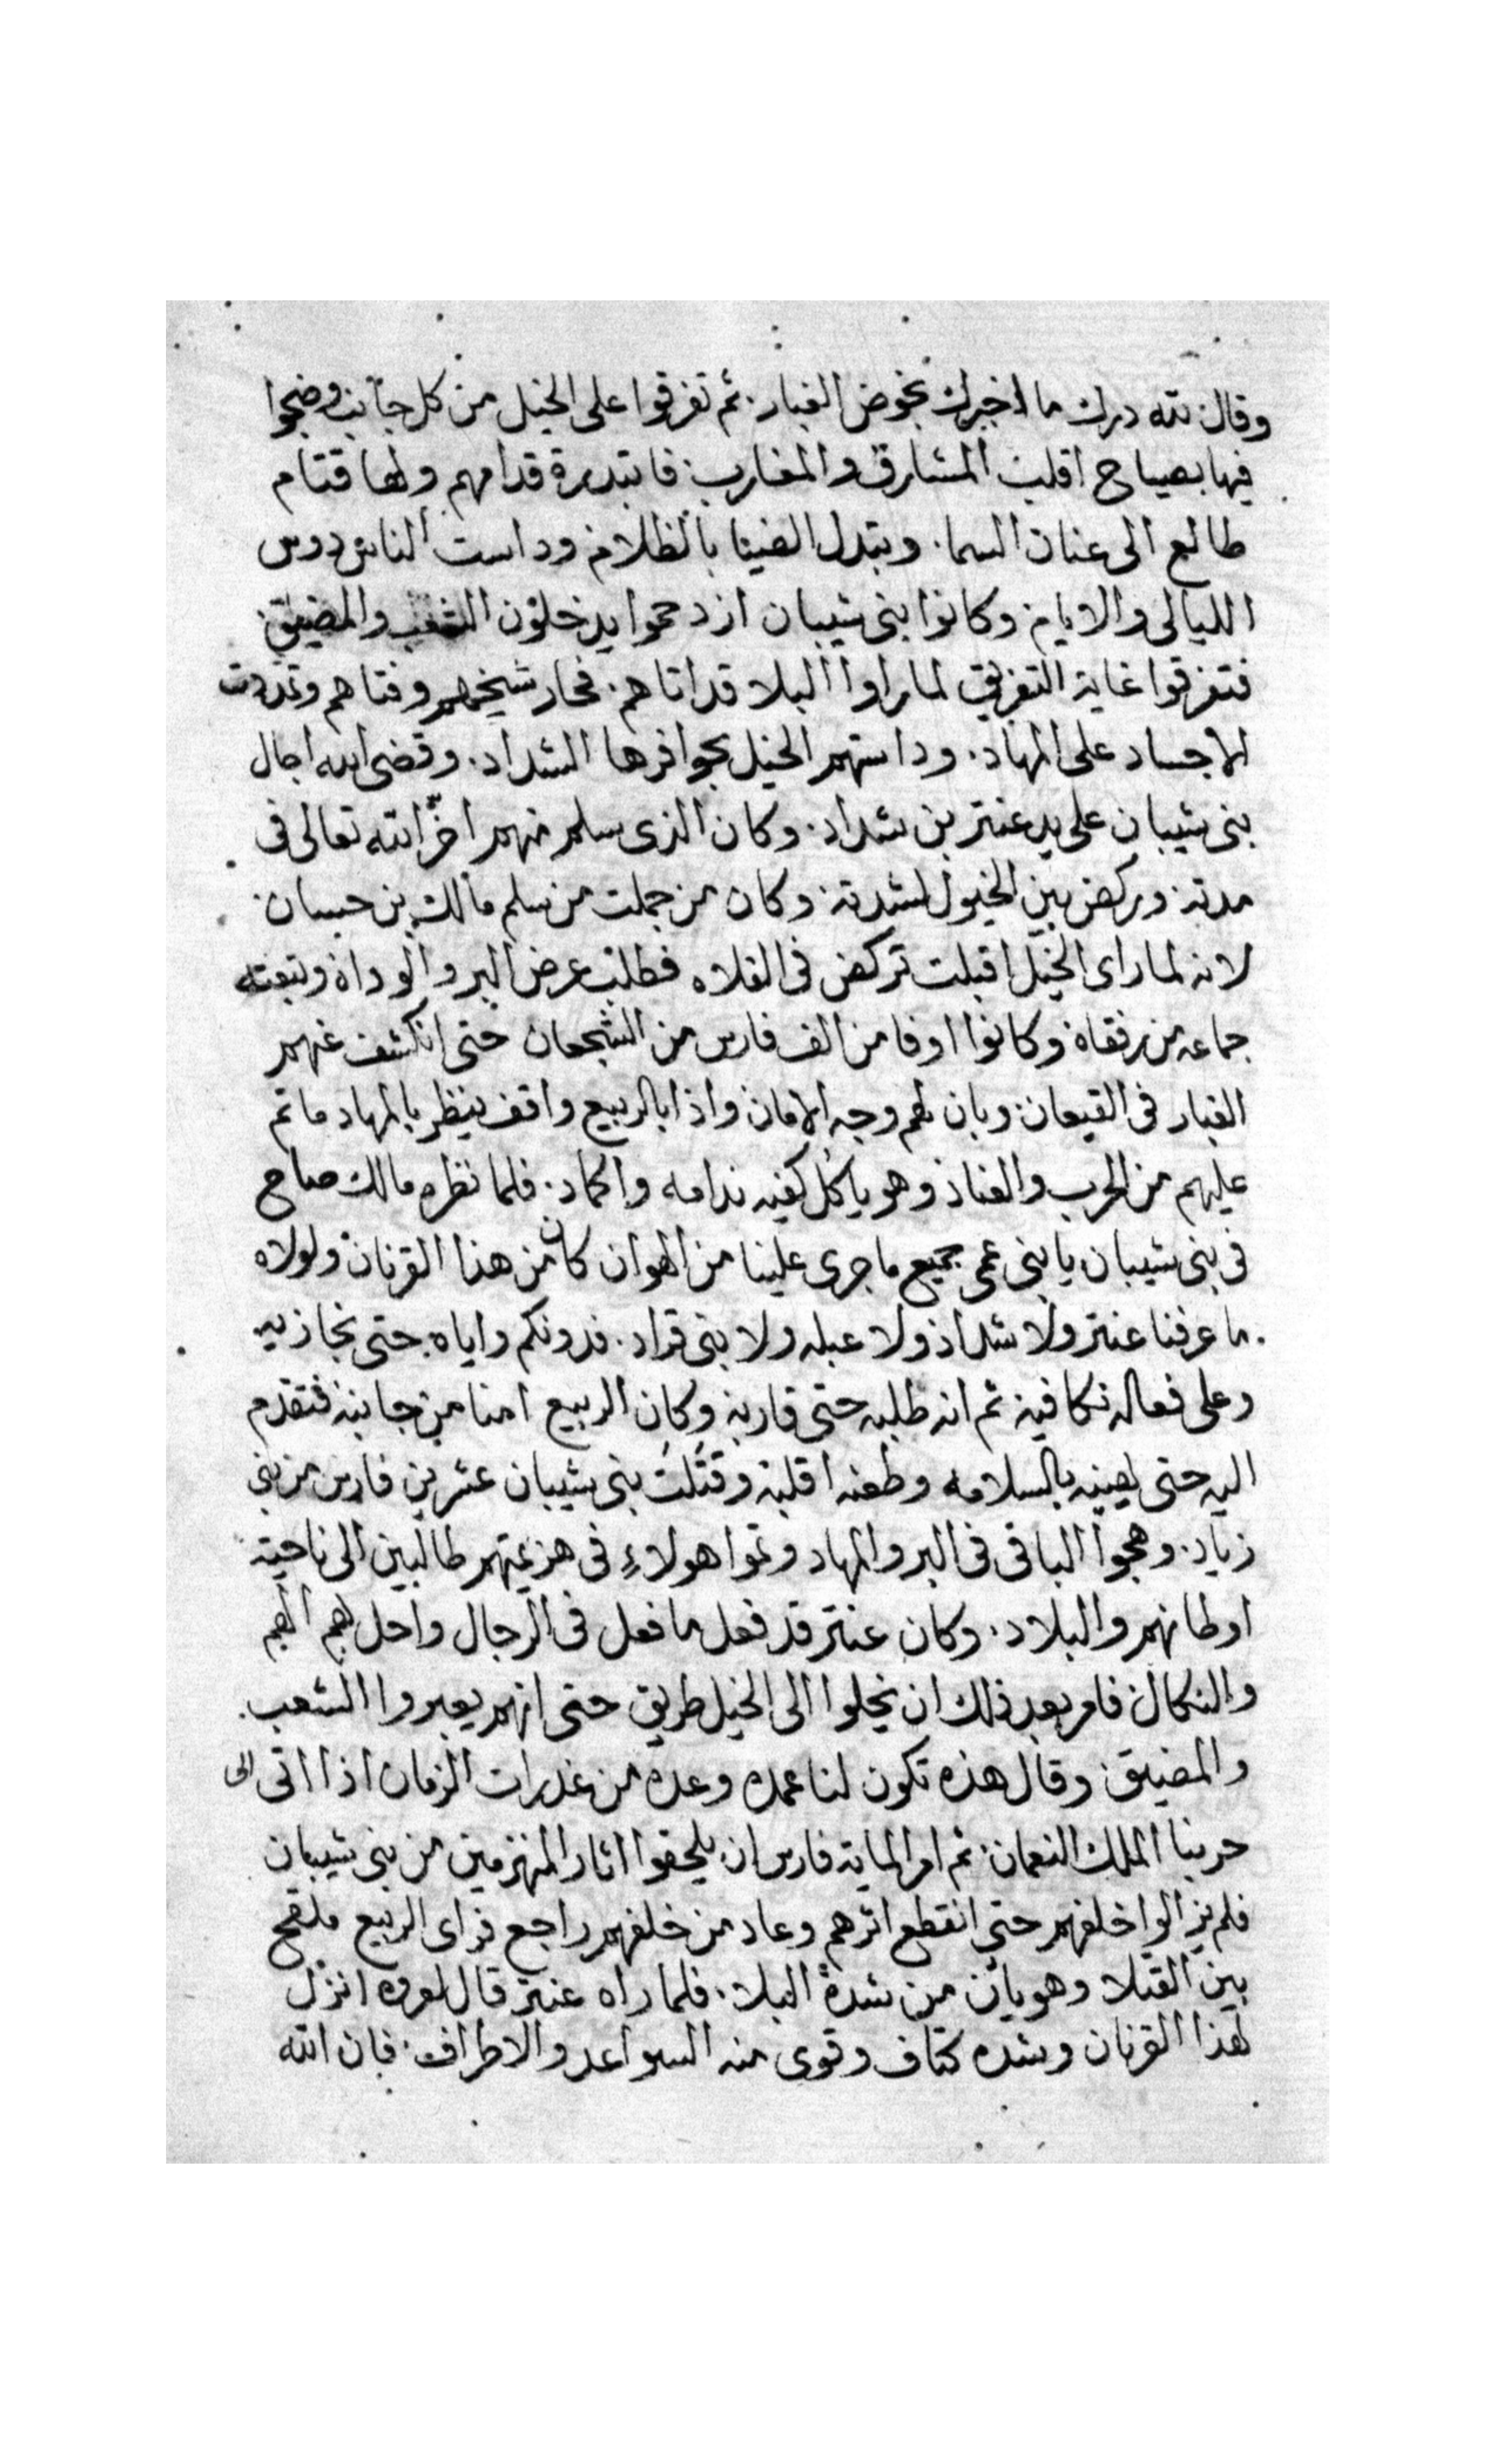 وقال لله درك ما اخبرك بخوض الغبار. ثم تفرقوا على الخيل من كل جانب وضجوا
فيها بصياح اقلب المشارق والمغارب فابتدرة قدامهم ولها قتام
طالع الى عنان السما. وتبدل الضيا بالظلام وداست الناس دوس
الليالى والايام وكانوا بنى شيبان ازدحموا يدخلون الشعب والمضيق
فتفرقوا غاية التفريق لما راوا البلا قد اتاهم. فحار شيخهم وفتاهم وتمددت
الاجساد على المهاد. وداستهم الخيل بحوافرها الشداد. وقضى الله اجال
بنى شيبان على يد عنتر بن شداد. وكان الذى سلم منهم اخّر الله تعالى فى
مدته وركض بين الخيول لشدته. وكان من جملت من سلم مالك بن حسان
لانه لما راى الخيل اقبلت تركض فى الفلاه فطلب عرض البر والوداة وتبعته
جماعه من رفقاة وكانوا اوفا من الف فارس من الشجعان حتى انكشف عنهم
الغبار فى القيعان وبان لهم وجه الامان واذا بالربيع واقف ينظر بالمهاد ما تم
عليهم من الحرب والعناد وهو ياكل كفيه ندامه واكماد. فلما نظره مالك صاح
فى بنى شيبان يا بنى عمى جميع ما جرى علينا من الهوان كان من هذا القرنان ولولاه
ما عرفنا عنتر ولا شداد ولا عبله ولا بنى قراد. فدونكم واياه حتى نجازيه
وعلى فعاله نكافيه ثم انه طلبه حتى قاربه وكان الربيع امنا من جانبه فتقدم
اليه حتى يهنيه بالسلامه وطعنه اقلبه وقتلت بنى شيبان عشرين فارس من بنى
زياد. وهجوا الباقى فى البر والمهاد وتموا هولاءِ فى هزيمتهم طالبين الى ناحية
اوطانهم والبلاد. وكان عنتر قد فعل ما فعل فى الرجال واحل بهم
والنكال فامر بعد ذلك ان يخلوا الى الخيل طريق حتى انهم يعبروا الشعب
والمضيق وقال هذه تكون لنا عمده وعده من غدرات الزمان اذا اتى الى
حربنا الملك النعمان ثم امر الماية فارس ان يلحقوا اثار المنهزمين من بنى شيبان
فلم يزالوا خلفهم حتى انقطع اثرهم وعاد من خلفهم راجع فراى الربيع ملقح
بين القتلا وهو يان من شدة البلا. فلما راه عنتر قال لعروه انزل
لهذا القرنان وشده كتاف وقوى منه السواعد والاطراف. فان الله